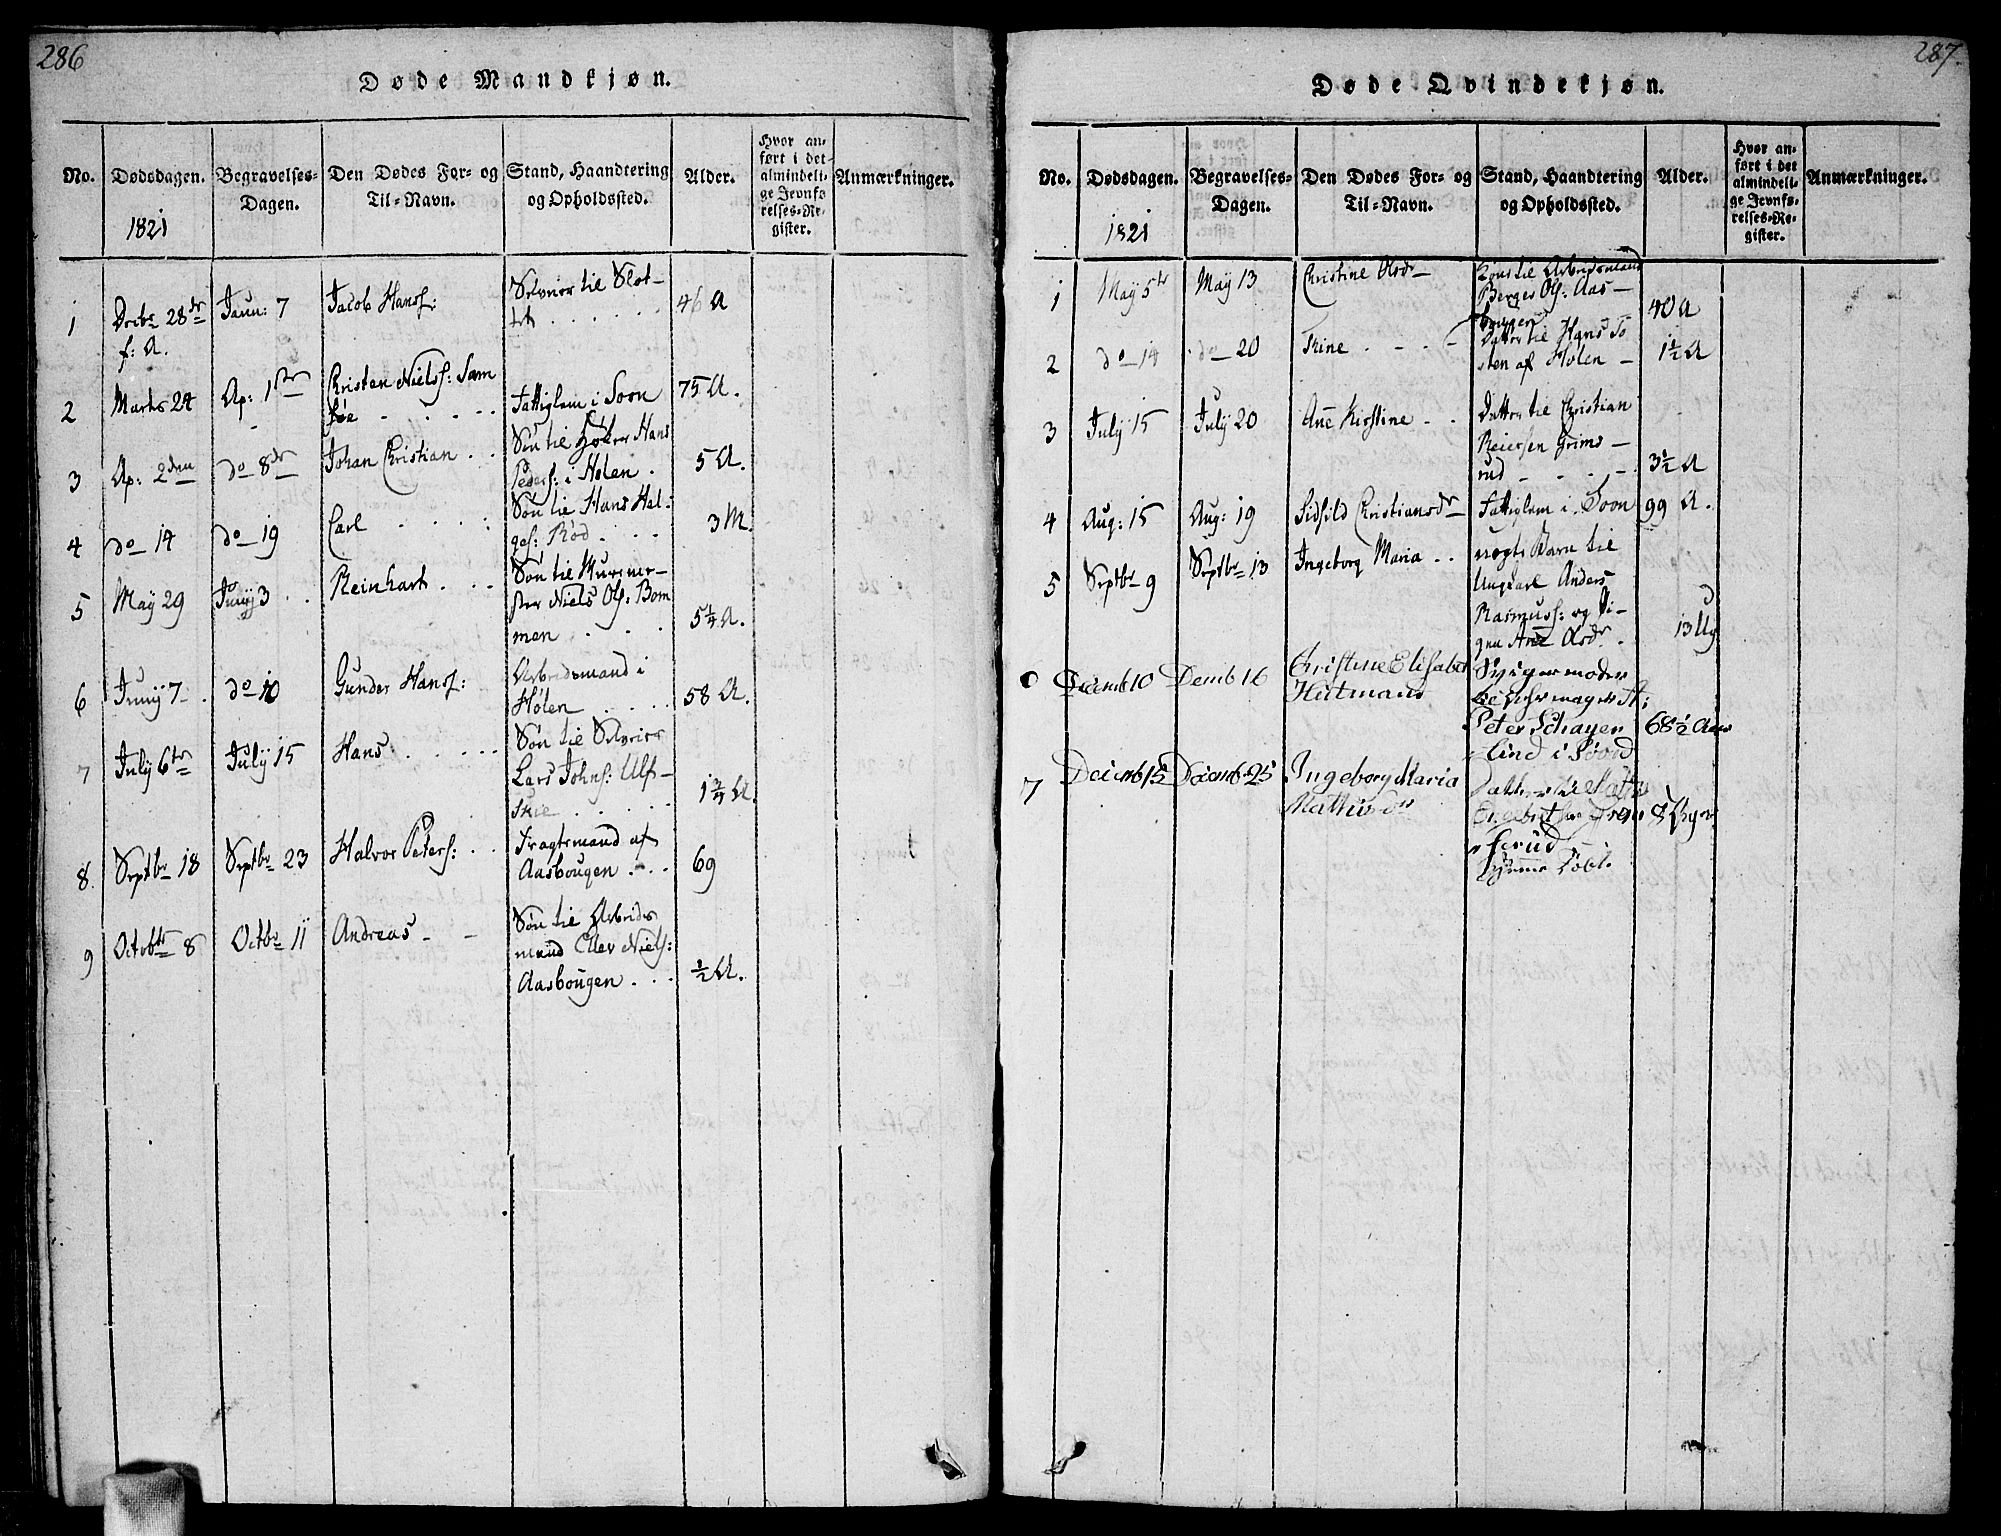 286
Døde Mandkjøn.
No.
Dødsdagen.
1821
Begravelses-
Dagen.
Den Dødes For- og
Til-Navn.
Stand, Haandtering
og Opholdssted.
Alder.
Hvor an-
ført i det
almindeli-
ge Jevnfø-
relses-Re-
gister.
Anmærkninger.
1 Decbr 28de Janu: 7 Jacob Hanss: til Slot- 46 A
f: A.
2 Marts 24 Ap: 1ste Christen Nielss: Sam
søe - - - - Fattiglem i Soon 75 A.
3 Ap: 2den do 8de Johan Christian . . Søn til Høker Hans
Peders: i Holen . 5 A.
4 do 14 do 19 Carl . . . . Søn til Hans Hal-
ges: Rød . . . 3 M.
5 May 29 Juny 3 . . Reinhart . . . Søn til Muurme-
ster Niels Ols: Bom
men . . . 5 1/4 A.
6 Juny 7 . do 10 Gunder Hanss: Arbeidsmand i
Hølen . . . . 58 A.
7 July 6te July 15 Hans . . . . Søn til
Lars Johns: Ulf-
skie . . . . 1 3/4 A.
8. Septbr 18 Septbr 23 Halvor Peters: . . Fragtemand af
Aasbougen . . . 69
9 Octobr 8 Octbr 11 Andreas - - Søn til Arbeids
mand Eller Niels:
Aasbougen . . . 1/2 A.
287.
Døde Qvindekjøn.
No.
Dødsdagen.
1821
Begravelses-
Dagen.
Den Dødes For- og
Til-Navn.
Stand, Haandtering
og Opholdssted.
Alder.
Hvor an-
ført i det
almindeli-
ge Jevnfø-
relses-Re-
gister.
Anmærkninger.
1 May 5te May 13 Christine Olsdr - Kone til Arbeidsmand
Berger Ols: Aas-
bougen 40 A
2 do 14 do 20 Trine . - . - Datter til Hans To
sten af Hølen - 1 1/2 A
3 July 15 July 20 Ane Kirstine . . Datter til Christian
Reiersen Grims-
rud - . - . - 3 1/2 A
4 Aug: 15 Aug: 19 Sidsild Christiansdr Fattiglem i Soon 99 A.
5 Septbr 9 Septbr 13 Ingeborg Maria . . uægte Barn til
Ungkarl Anders
Rasmuss: og Pi-
gen Ane Olsdr . 13 Ug
6 Decemb 10 Decmb 16 Christine Elisabet Svigermoder
Hertmand til Uhrmager A:
Peter Schayer 68 1/2 Aar
Lind i
7 Decemb 15 Decemb 25 Ingeborg Maria Datter til
Mathisdr Engebrethsen 8 Uger
serud
hjemme døbt.